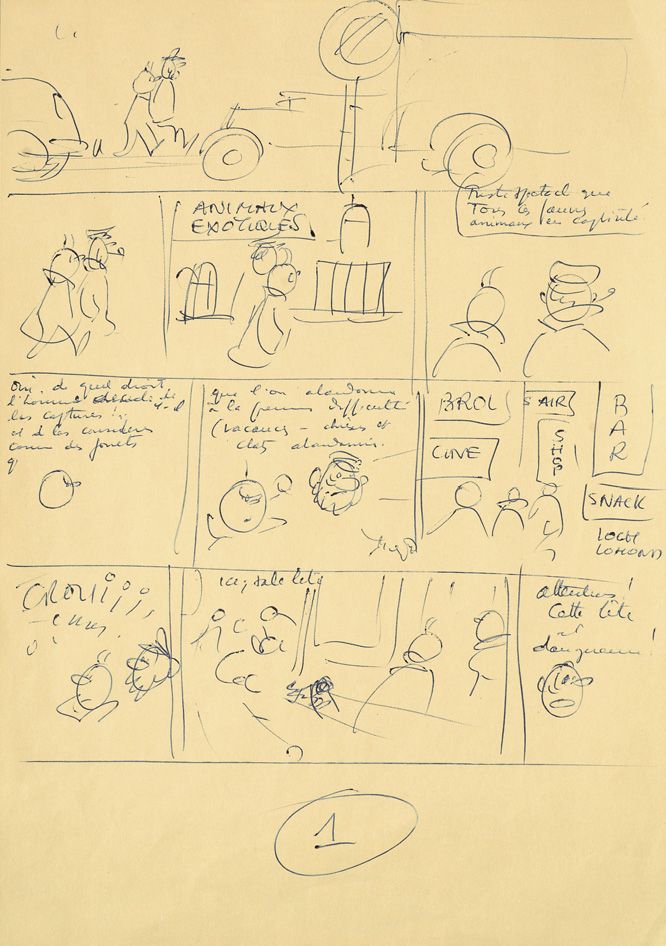 ANIMAUX
EXOTIQUES
Triste spectacl que
Tous les
animaux en captivité.
Oui, de quel droit
l'homme
les captures
et à les considérer
comme des jouets
q
que l'on abandonne
à la première difficulté
(vacances - chiens et
chats abandonnés.
BROL
CINE
SAIR
SHOP
BAR
SNACK
LOCH
LOMOND
ici, sale bête
attention!
Cette bête
est
dangereuse!
1